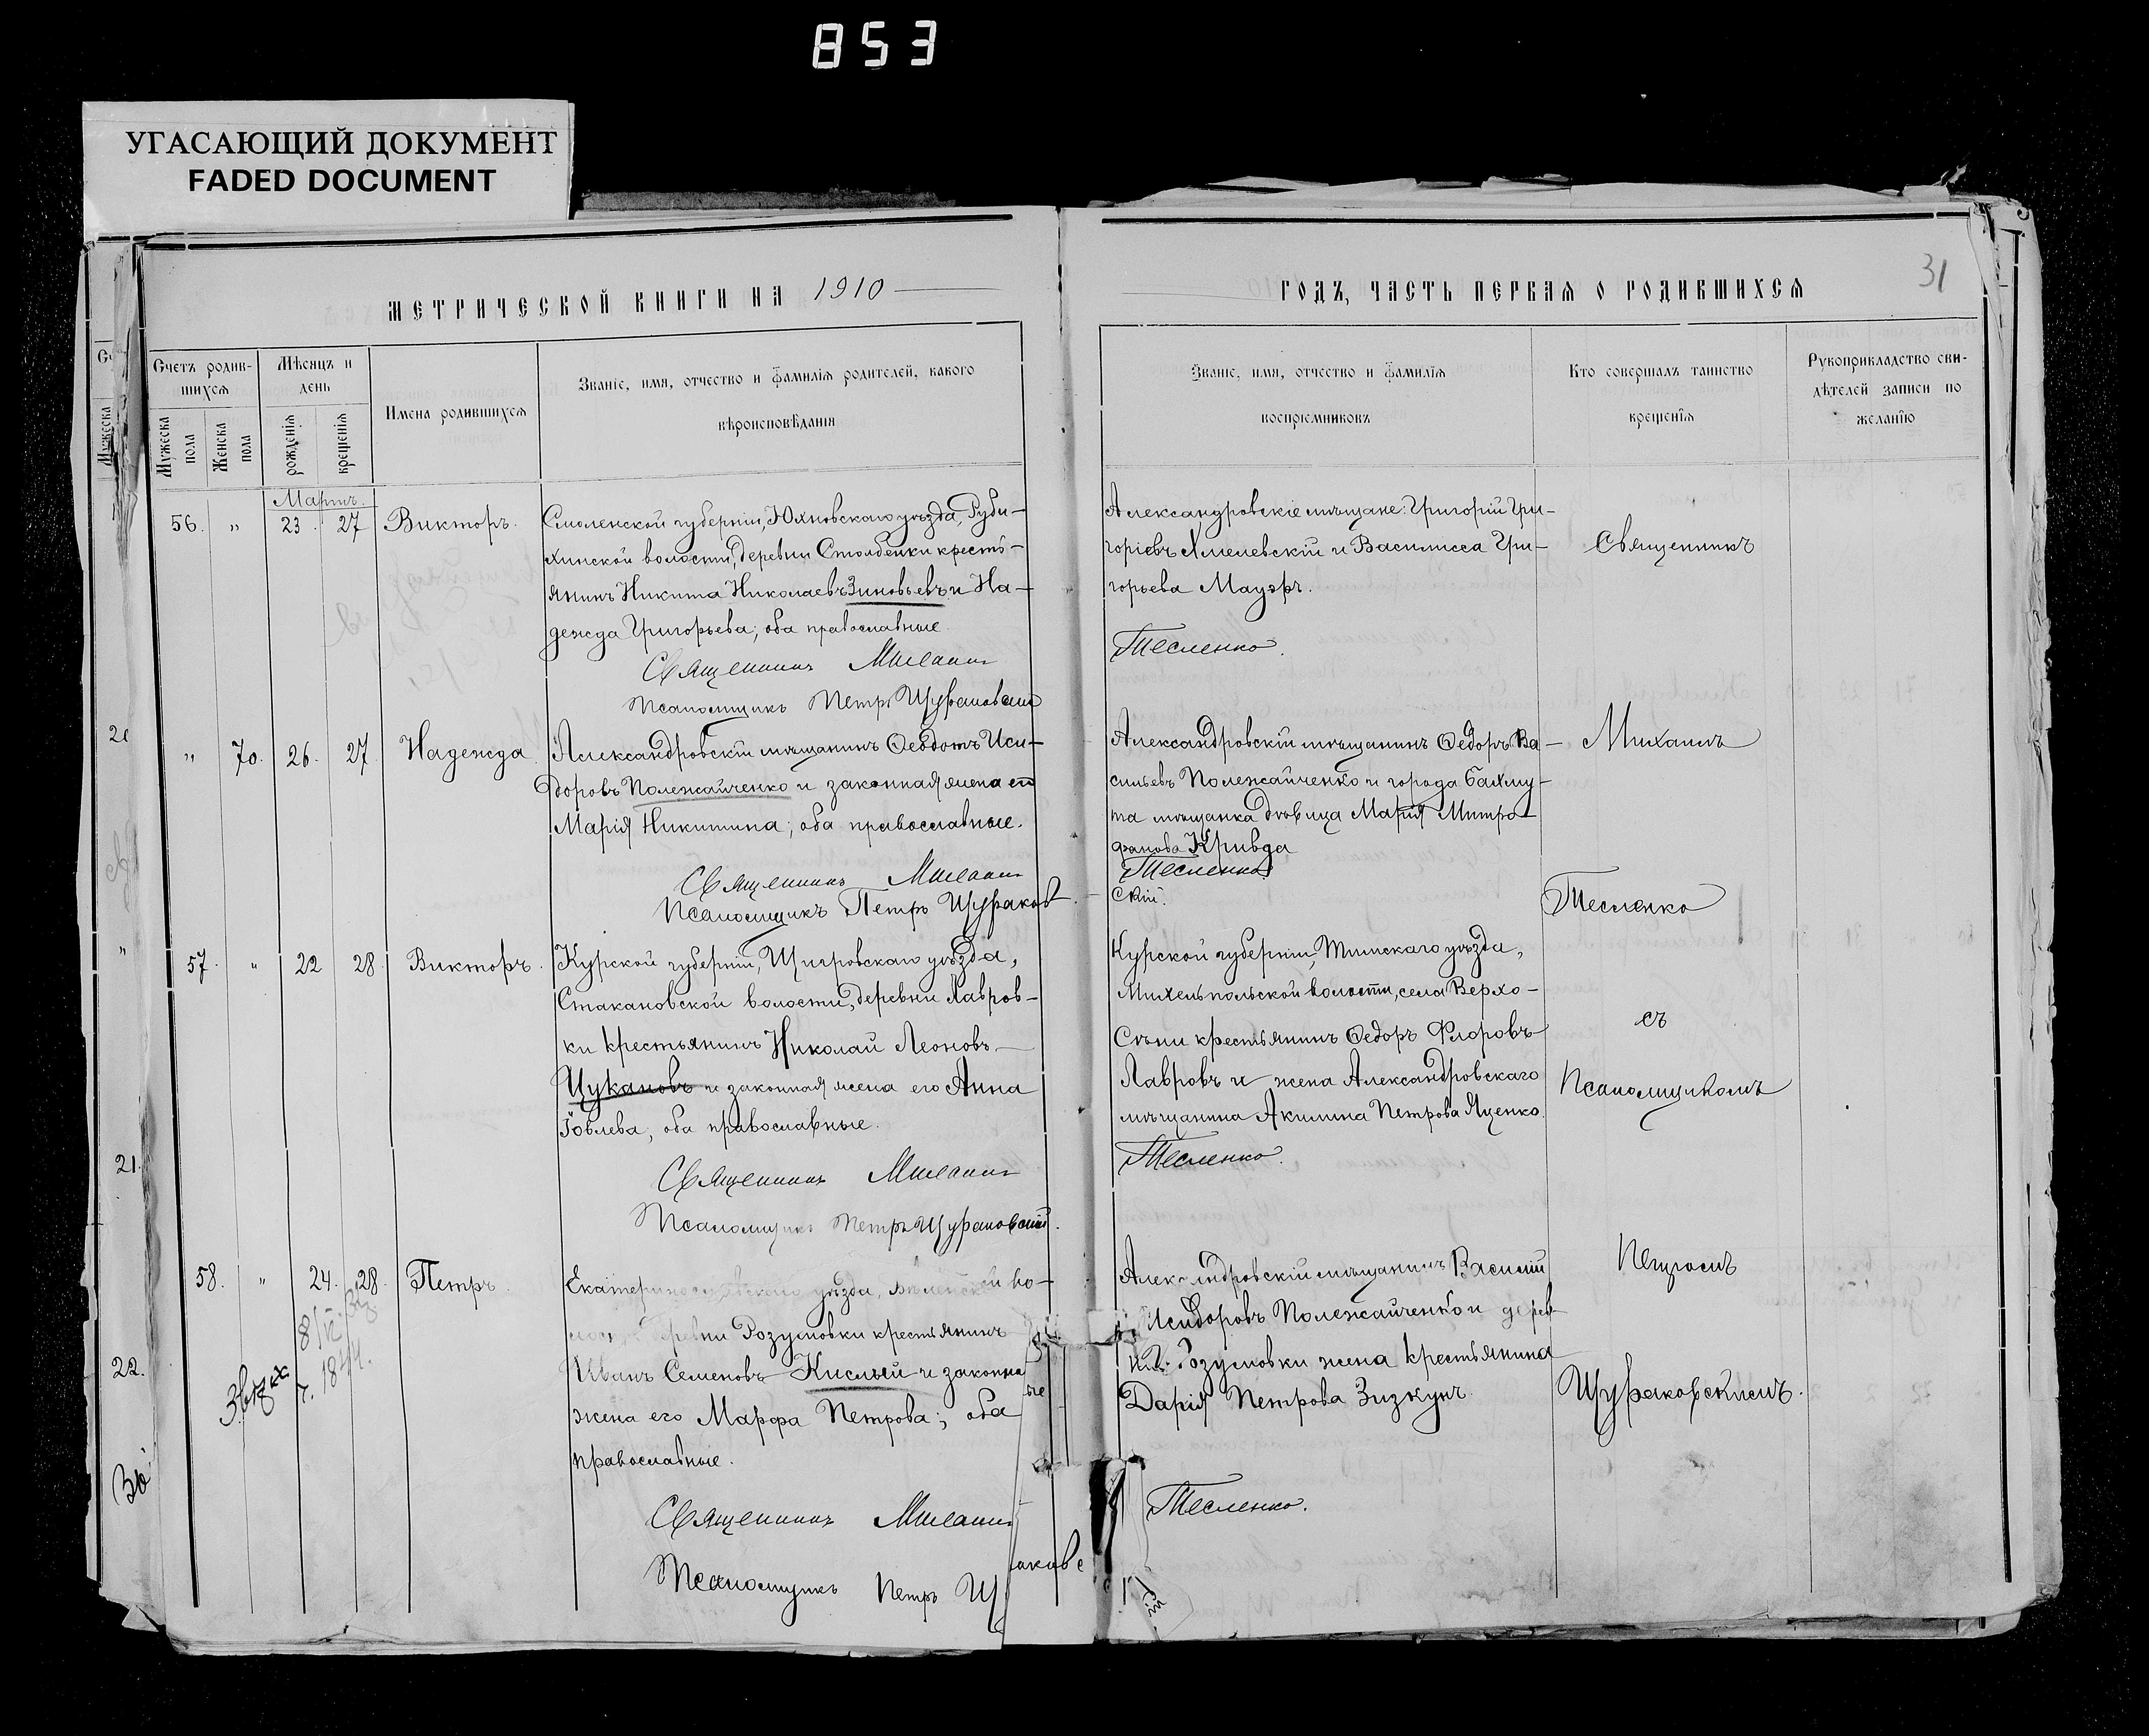 853
УГАСАЮЩИЙ ДОКУМЕНТ
FADED DOCUMENT
МЕТРИЧЕСКОЙ КНИГИ НА 1910
ГОДЪ, ЧАСТЬ ПЕРВАЯ О РОДИВШИХСЯ
31
Счетъ родив-
шихся
Мѣсяцъ и
день
Мужеска
пола
Женска
пола
рожденія
крещенія
Имена родившихся
Званіе, имя, отчество и фамилія родителей, какого
вѣроисповѣданія
Званіе, имя, отчество и фамилія
воспріемниковъ
Кто совершалъ таинство
крещенія
Рукоприкладство сви-
дѣтелей записи по
желанію
Мартъ.
56. „ 23. 27 Викторъ.
Смоленской губерніи, Юхновскаго уѣзда, Руби-
хинской волости, деревни Столбенки кресть-
янинъ Никита Николаевъ Зиновьевъ и На-
дежда Григорьева; оба православные.
Священникъ
Псаломщикъ Петръ Щураковскій
Александровскіе мѣщане: Григорій Гри-
горіевъ Хмелевскій и Василисса Гри-
горьева Мауэръ.
Тесленко.
„ 70. 26. 27. Надежда
Александровскій мѣщанинъ Ѳеодотъ Иси-
доровъ Полежайченко и законная жена его
Марія Никитина; оба православные.
Священникъ
Псаломщикъ Петръ Щураков-
Александровскій мѣщанинъ Ѳедоръ Ва-
сильевъ Полежайченко и города Бахму-
та мѣщанка дѣвица Марія Митро-
фанова Кривда
Тесленко
скій.
57. „ 22 28. Викторъ.
Курской губерніи, Щигровскаго уѣзда,
Стакановской волости, деревни Лавров-
ки крестьянинъ Николай Леоновъ
Цукановъ и законная жена его Анна
Іовлева; оба православные.
Священникъ
Псаломщикъ Петръ Щураковскій.
Курской губерніи, Тимскаго уѣзда,
Михельпольской волости, села Верхо-
Сѣни крестьянинъ Ѳедоръ Флоровъ
Лавровъ и жена Александровскаго
мѣщанина Акилина Петрова Яценко.
Тесленко.
58. „ 24. 28. Петръ.
Екатеринославскаго уѣзда, во-
деревни Розумовки крестьянинъ
Иванъ Семеновъ Кислый и законная
жена его Марфа Петрова; оба
православные.
Священникъ
Псаломщикъ Петръ Щ
аковс
кій
Александровскій мѣщанинъ Василій
Исидоровъ Полежайченко и дерев-
ни Розумовки жена крестьянина
Дарія Петрова Зизкунъ.
Тесленко.
Священникъ
Михаилъ
Тесленко
съ
Псаломщикомъ
Петромъ
Щураковскимъ.
21.
22.
30